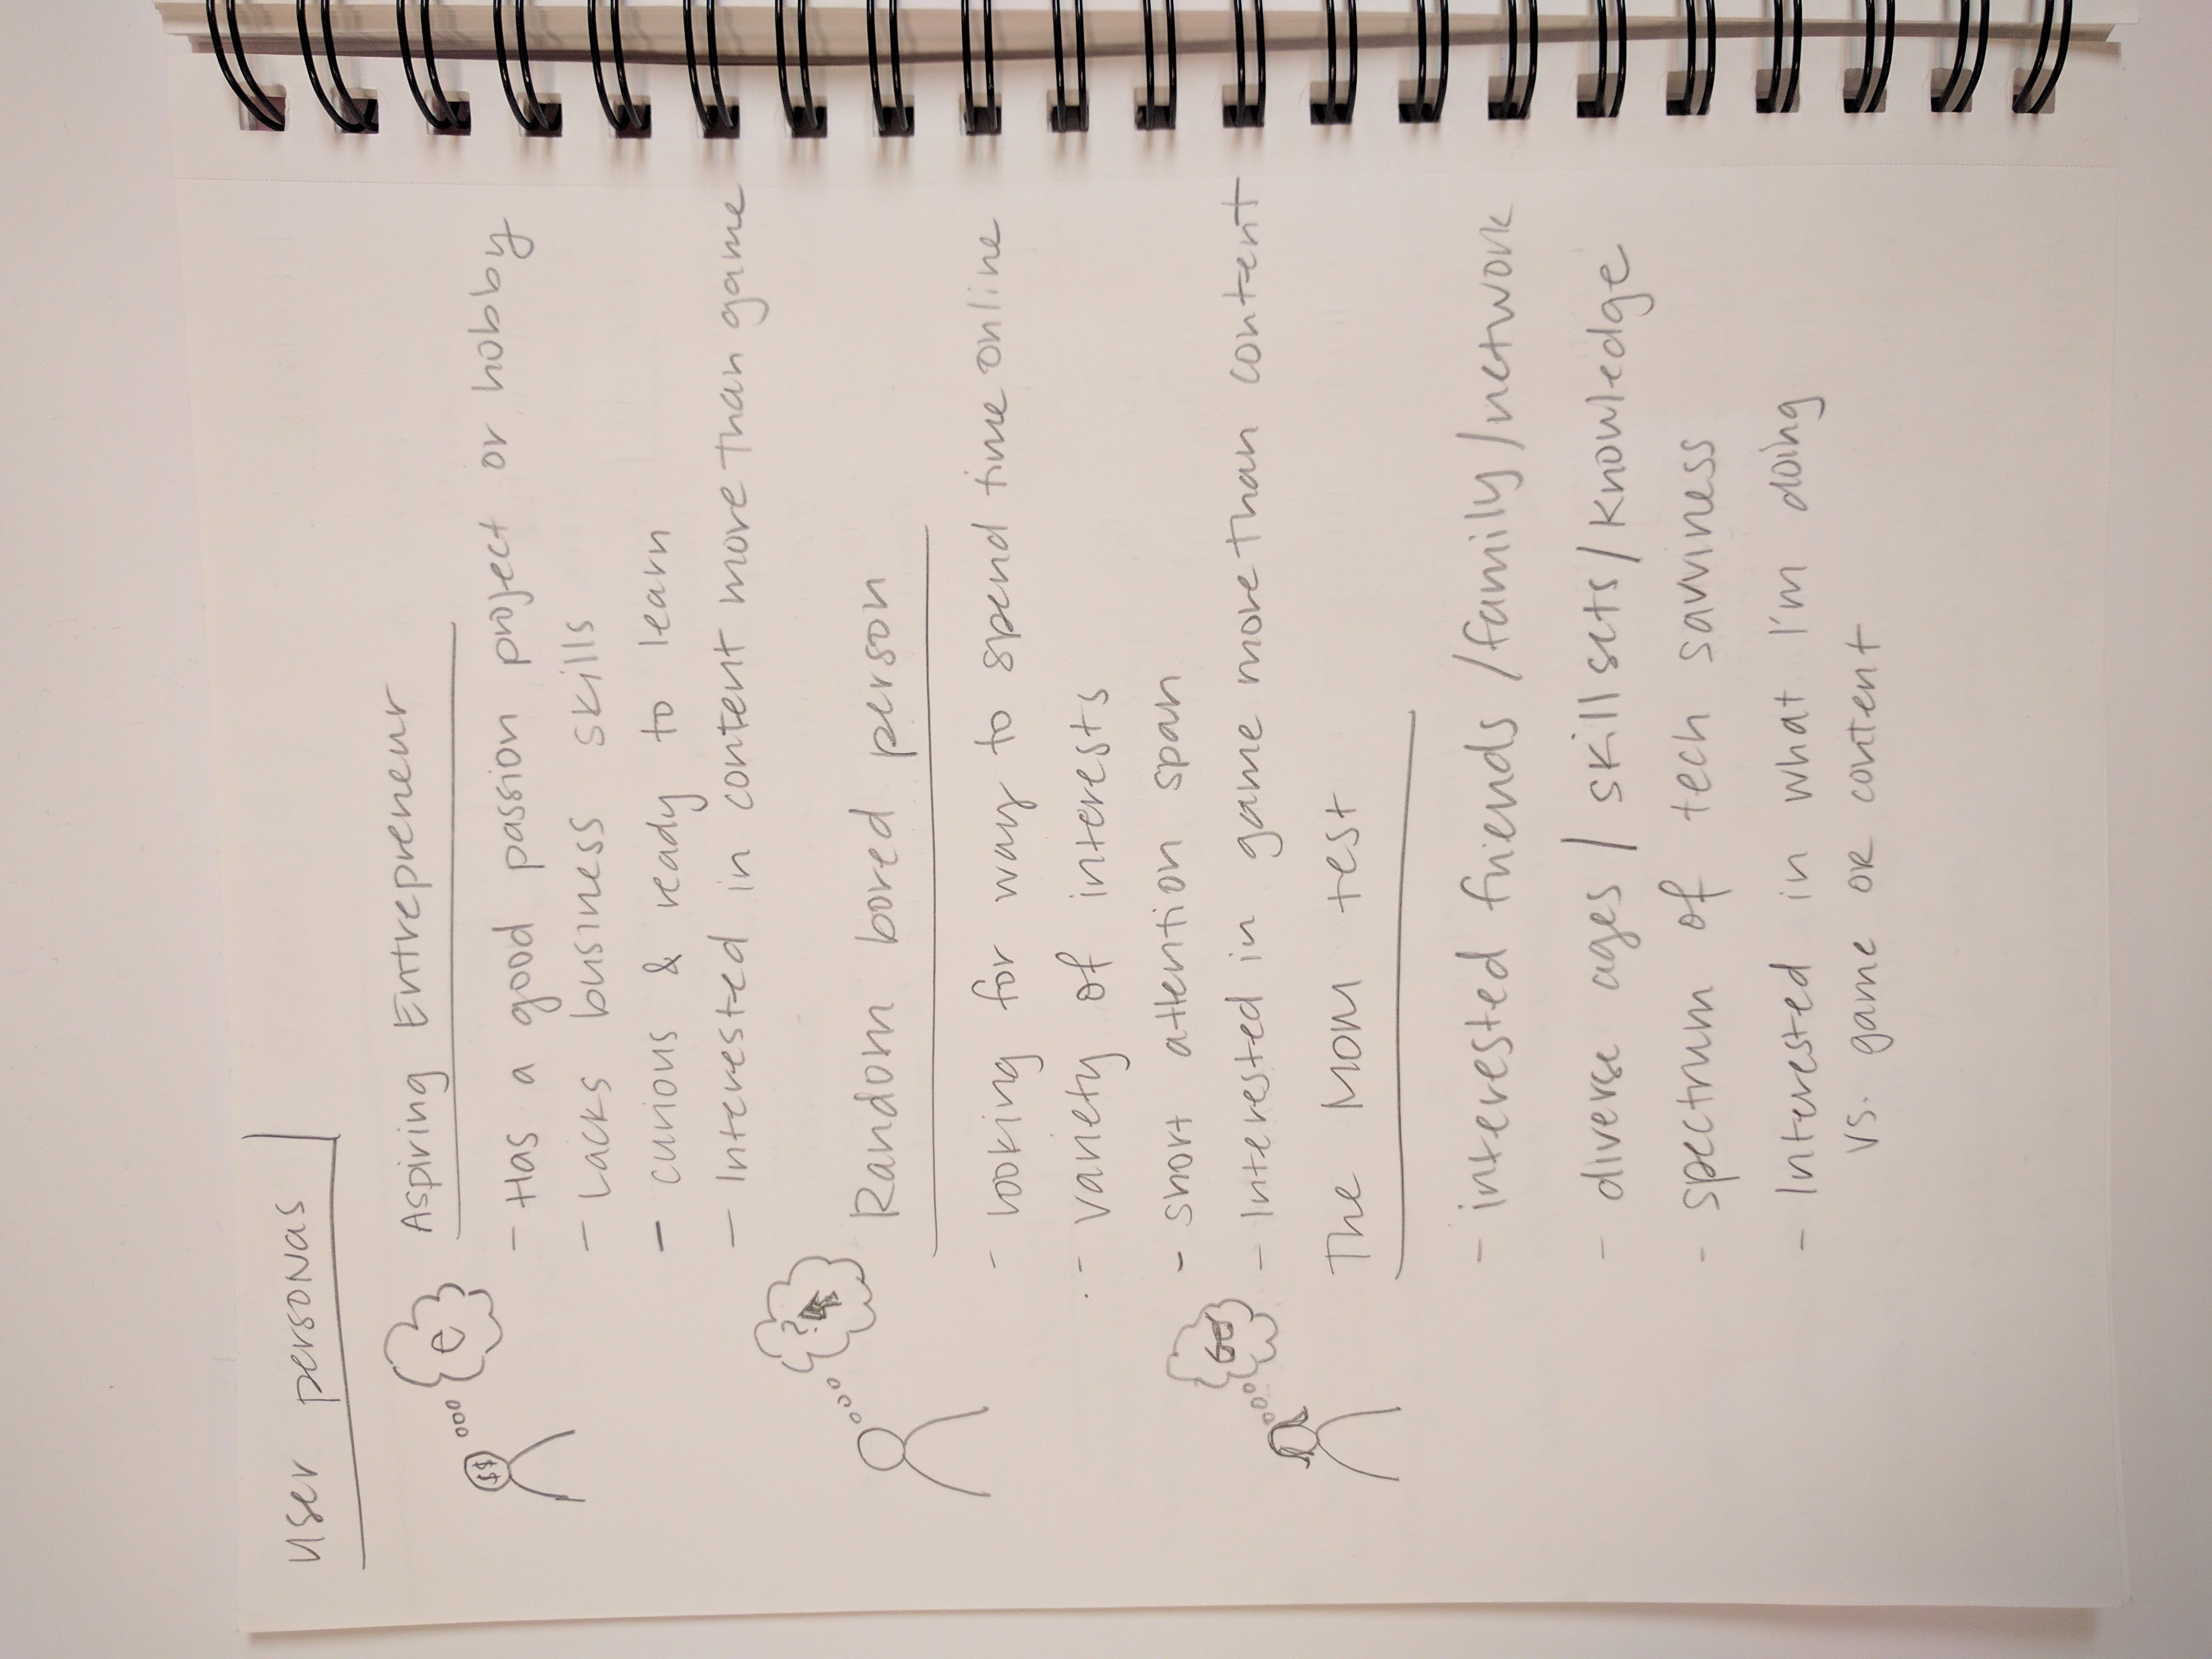 User personas
$$
e
Aspiring Entrepreneur
- Has a good passion project or hobby
- Lacks business skills
- curious & ready to learn
- Interested in content more than game
?
Random bored person
- looking for way to spend time online
- variety of interests
- short attention span
- Interested in game more than content
The Mom test
- interested friends/family/network
- diverse ages/skillsets/knowledge
- spectrum of tech savviness
- Interested in what I'm doing
vs. game or content